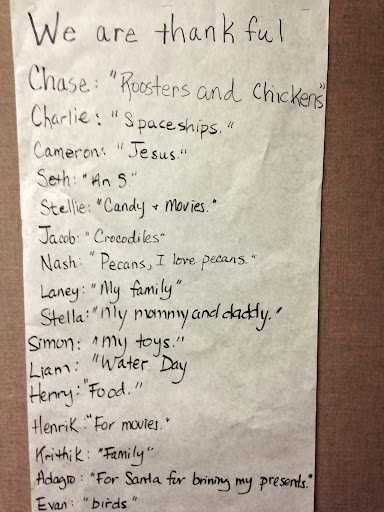 We are thankful
Chase: "Roosters and Chickens"
Charlie: "Spaceships."
Cameron: "Jesus."
Seth: "An S."
Stellie: "Candy + Movies."
Jacob: "Crocodiles"
Nash: "Pecans, I love pecans."
Laney: "My family"
Stella: "My mommy and daddy."
Simon: "My toys."
Liam: "Water Day
Henry: "Food."
Henrik: "For movies."
Krithik: "Family"
Adagio: "For Santa for brining my presents."
Evan: "birds"